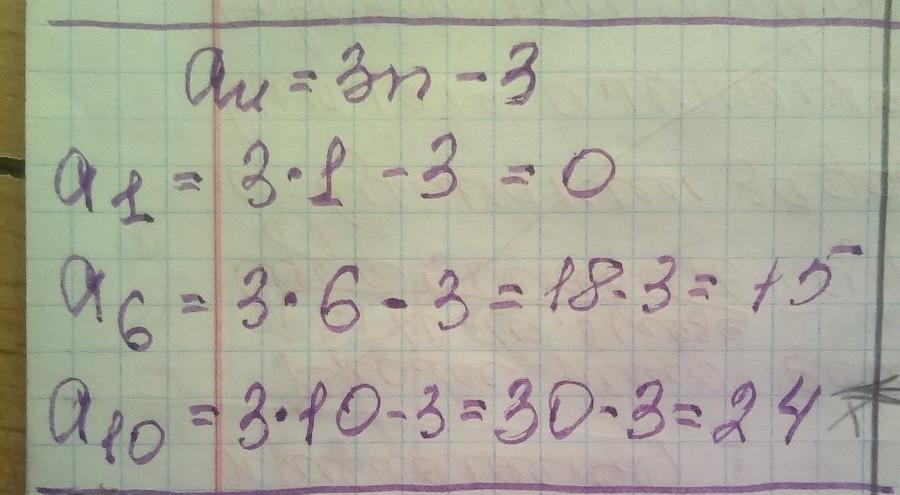 aₙ = 3n - 3
a₁ = 3·1 - 3 = 0
a₆ = 3·6 - 3 = 18 - 3 = 15
a₁₀ = 3·10 - 3 = 30 - 3 = 24